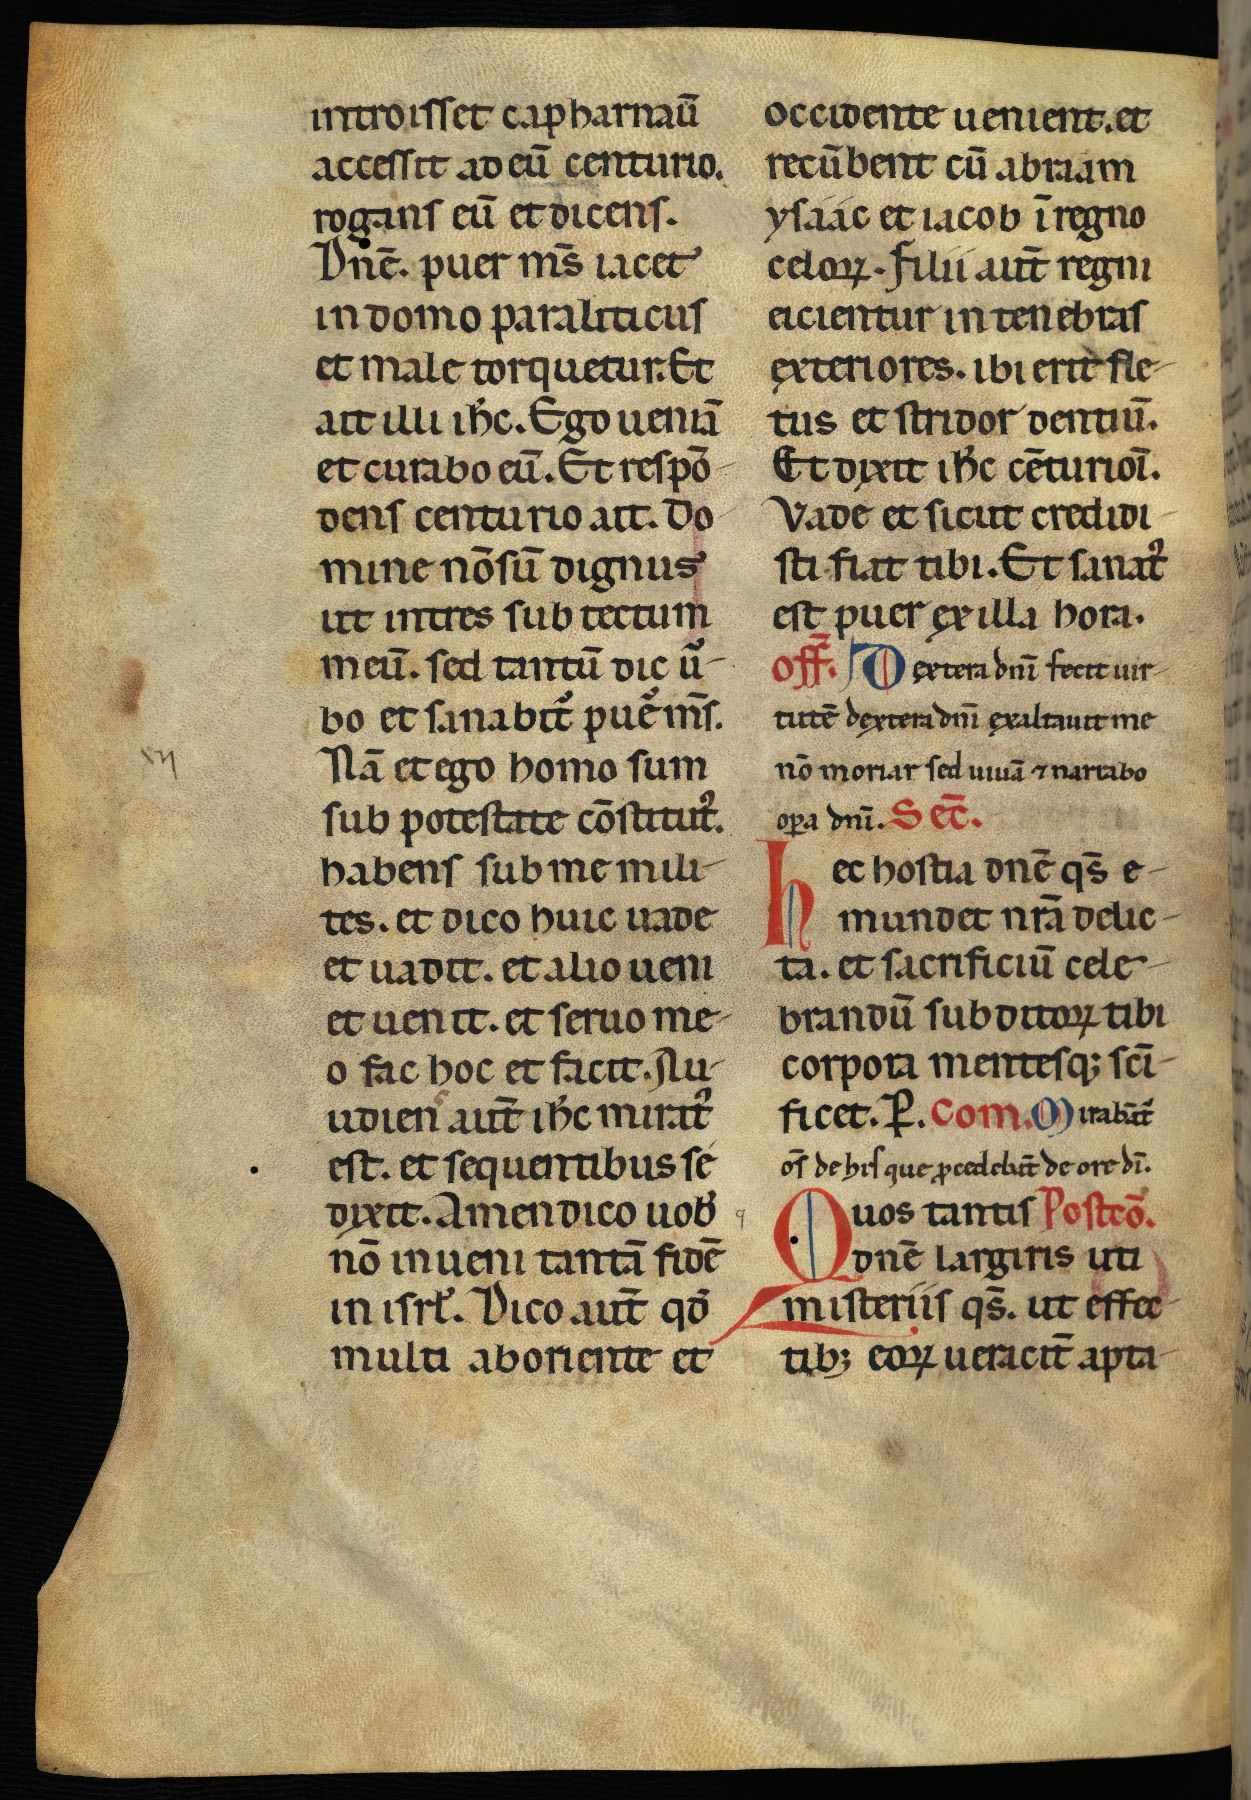 introisset capharnaū
accessit ad eū centurio.
rogans eū et dicens.
Dn̄e. puer m̄s iacet
in domo paraliticus
et male torquetur. Et
ait illi ih̄c. Ego ueniā
et curabo eū. Et respō-
dens centurio ait. Do-
mine nō sū dignus
ut intres sub tectum
meū. sed tantū dic ū-
bo et sanabit᷑ pue᷑ m̄s.
Nā et ego homo sum
sub potestate cōstitutꝰ.
habens sub me mili-
tes. et dico huic uade
et uadit. et alio ueni
et uenit. et seruo me-
o fac hoc et facit. Au-
udien̄ aut̄ ih̄c miratꝰ
est. et sequentibus se
dixit. Amen dico uob̄
nō inueni tantā fidē
in isrl̄. Dico aut̄ qd̄
multi ab oriente et
occidente uenient. et
recūbent cū abraam
ysaac et iacob ī regno
celoꝝ. filii aut̄ regni
eicientur in tenebras
exteriores. ibi erit fle-
tus et stridor dentiū.
Et dixit ih̄c cēturioī.
Vade et sicut credidi-
sti fiat tibi. Et sanatꝰ
est puer ex illa hora.
off̄. Dextera dn̄i fecit uir-
tutē dextera dn̄i exaltauit me
nō moriar sed uiuā ⁊ narrabo
oꝑa dn̄i. Sec̄.
hec hostia dn̄e qs̄ e-
mundet nr̄a delic-
ta. et sacrificiū cele-
brandū subditoꝝ tibi
corpora mentesqꝫ scī-
ficet. P̱. Com. Mirabāt᷑
om̄s de his que ꝓcedebāt de ore dī.
Quos tantis Postcō.
dn̄e largiris uti
misteriis qs̄. ut effec-
tibꝫ eoꝝ ueracit̄ apta-